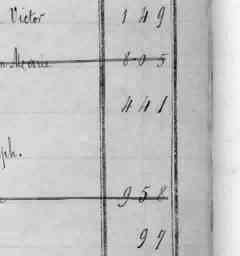 Victor 149
Marie 805
441
ph.
958
97